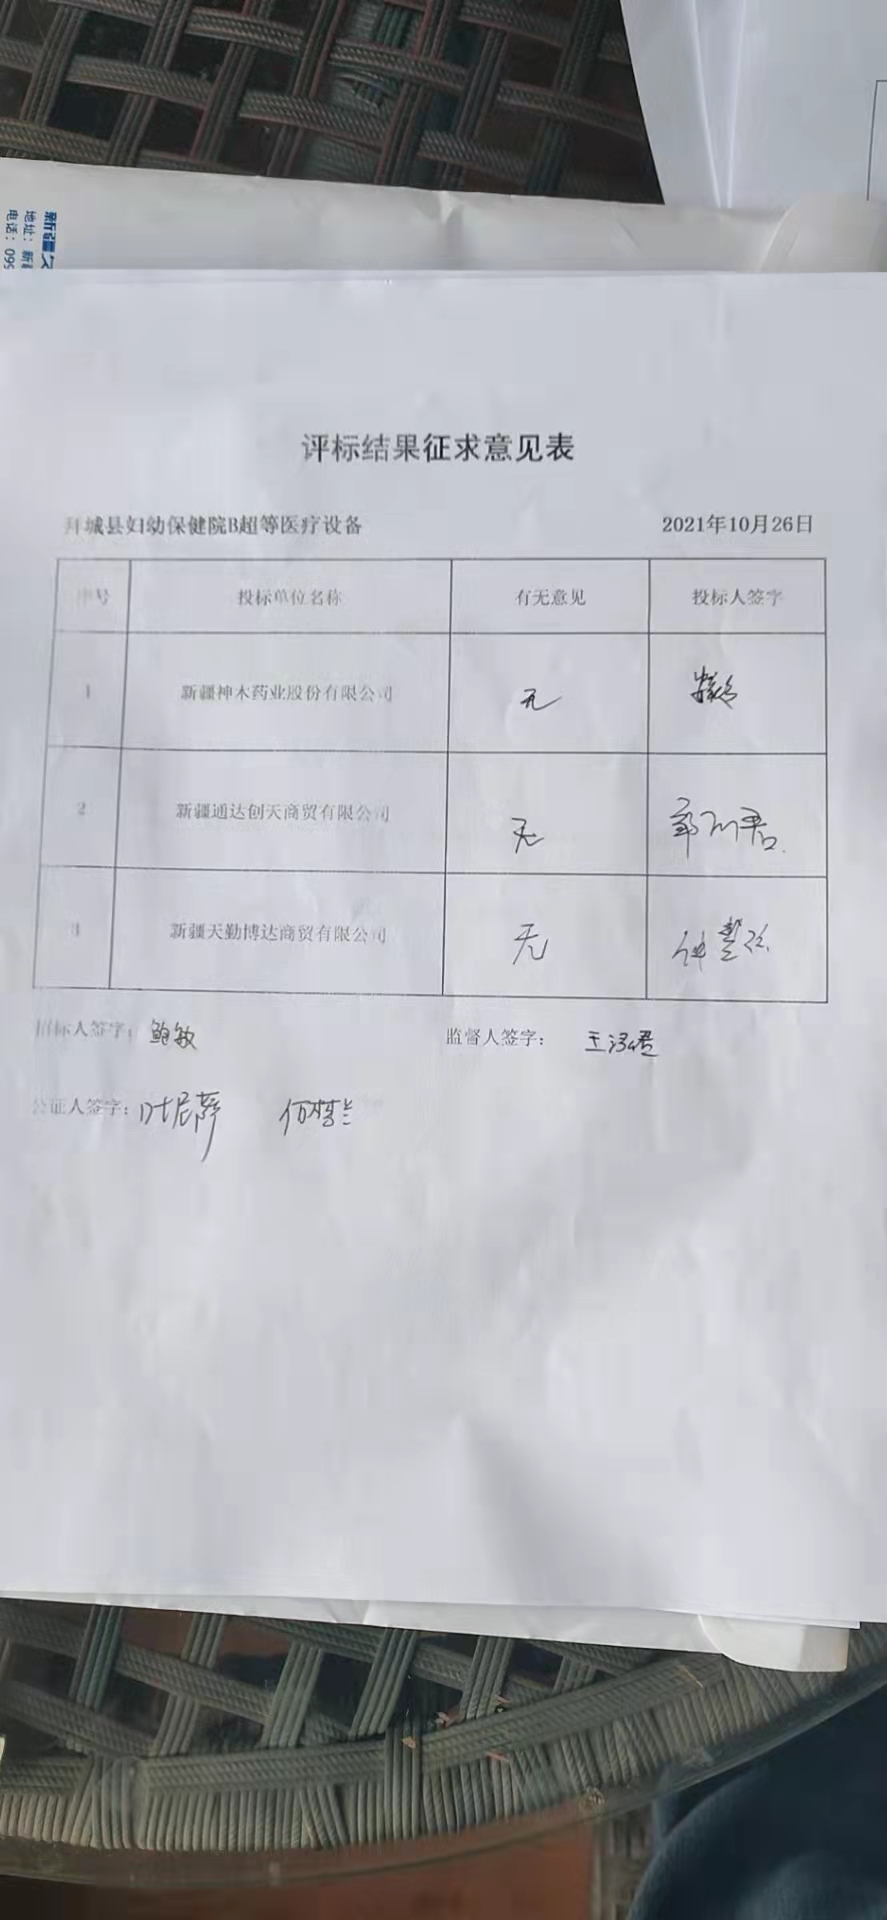 新疆
地址：新
电话：099
评标结果征求意见表
拜城县妇幼保健院B超等医疗设备 2021年10月26日
序号 投标单位名称 有无意见 投标人签字
1 新疆神木药业股份有限公司 无
2 新疆通达创天商贸有限公司 无
3 新疆天勤博达商贸有限公司 无
招标人签字：鲍敏 监督人签字：
公证人签字：叶尼萨